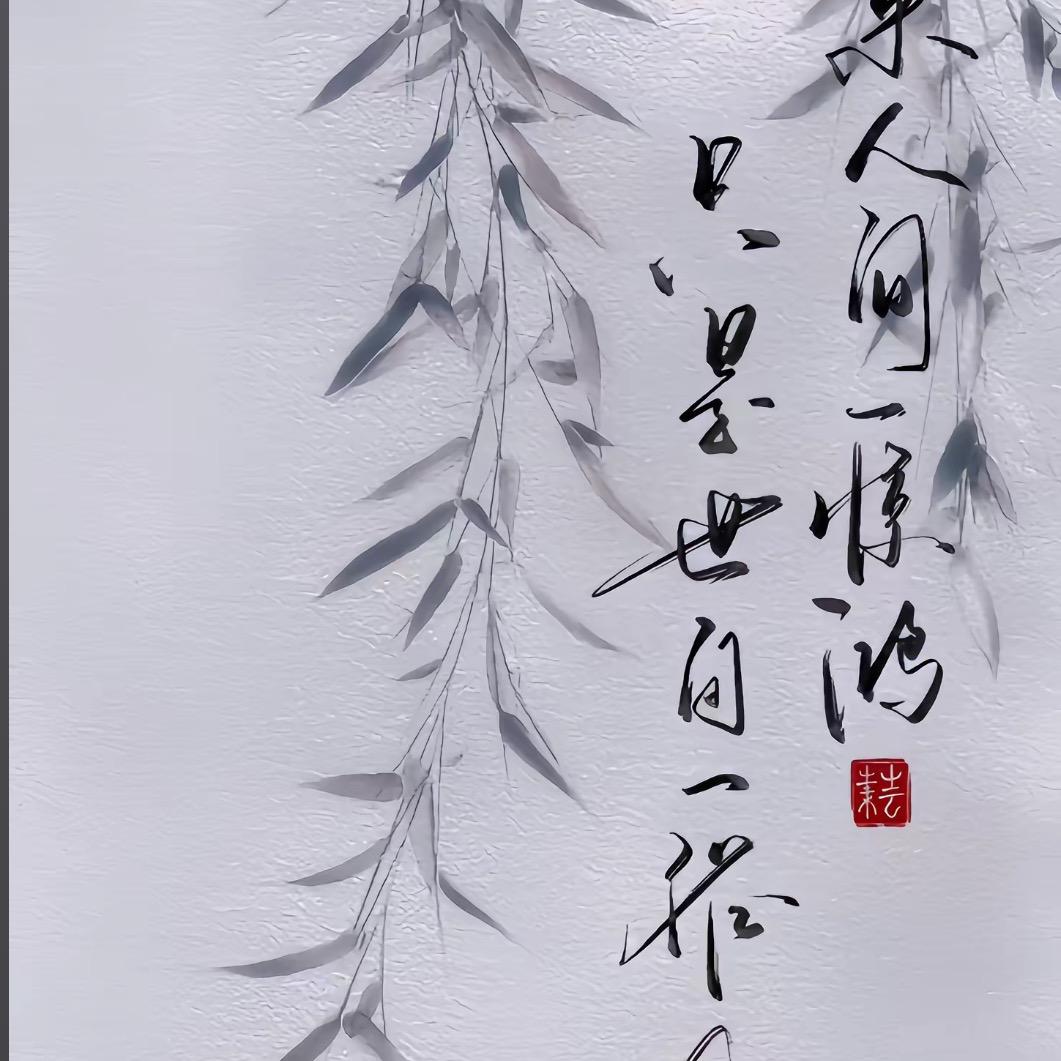 来人间一惊鸿
只是世间一俗